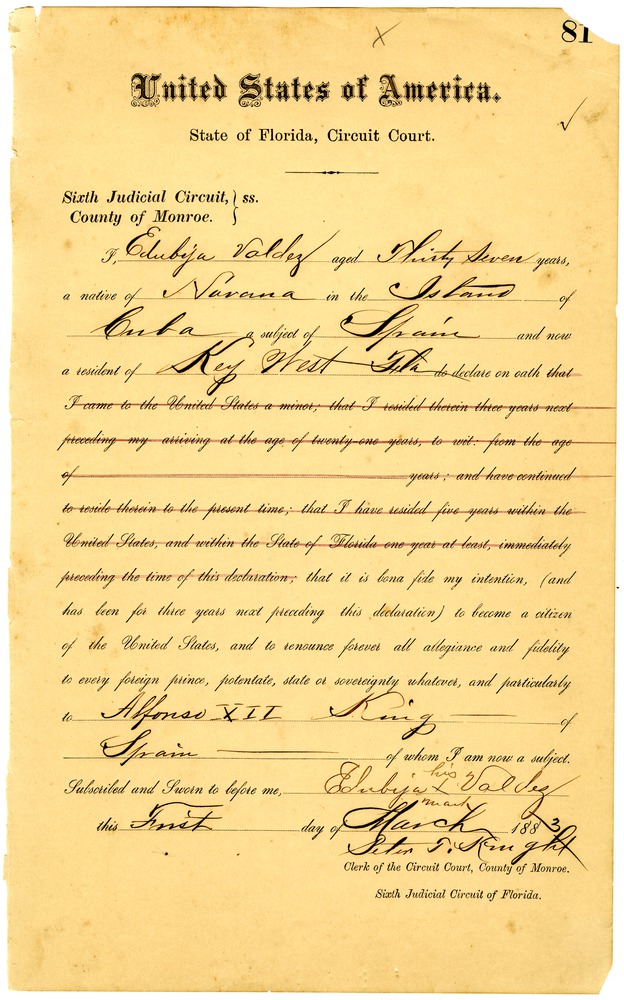 81
United States of America.
State of Florida, Circuit Court.
Sixth Judicial Circuit, } ss.
County of Monroe. }
I, Edubija Valdez aged Thirty Seven years,
a native of Navana in the Island of
Cuba a subject of Spain and now
a resident of Key West Fla do declare on oath that
I came to the United States a minor; that I resided therein three years next
preceding my arriving at the age of twenty-one years, to wit: from the age
of years; and have continued
to reside therein to the present time; that I have resided five years within the
United States, and within the State of Florida one year at least, immediately
preceding the time of this declaration; that it is bona fide my intention, (and
has been for three years next preceding this declaration) to become a citizen
of the United States, and to renounce forever all allegiance and fidelity
to every foreign prince, potentate, state or sovereignty whatever, and particularly
to Alfonso XII King of
Spain of whom I am now a subject.
his
Subscribed and Sworn to before me, Edubija X Valdez
mark
this First day of March 1883
Peter T. Knight
Clerk of the Circuit Court, County of Monroe.
Sixth Judicial Circuit of Florida.